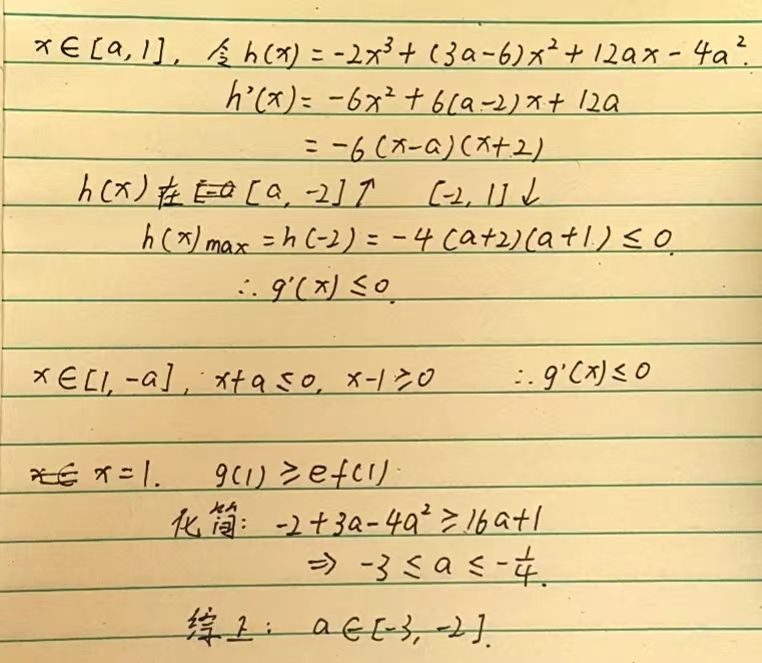 x∈[a,1], 令h(x)=-2x³+(3a-6)x²+12ax-4a².
h'(x)=-6x²+6(a-2)x+12a
=-6(x-a)(x+2)
h(x)在[a,-2]↑ [-2,1]↓
h(x)max=h(-2)=-4(a+2)(a+1)≤0.
∴g'(x)≤0.
x∈[1,-a], x+a≤0, x-1≥0 ∴g'(x)≤0
x=1. g(1)≥ef(1).
化简: -2+3a-4a²≥16a+1
⇒ -3≤a≤-1/4.
综上: a∈[-3,-2].